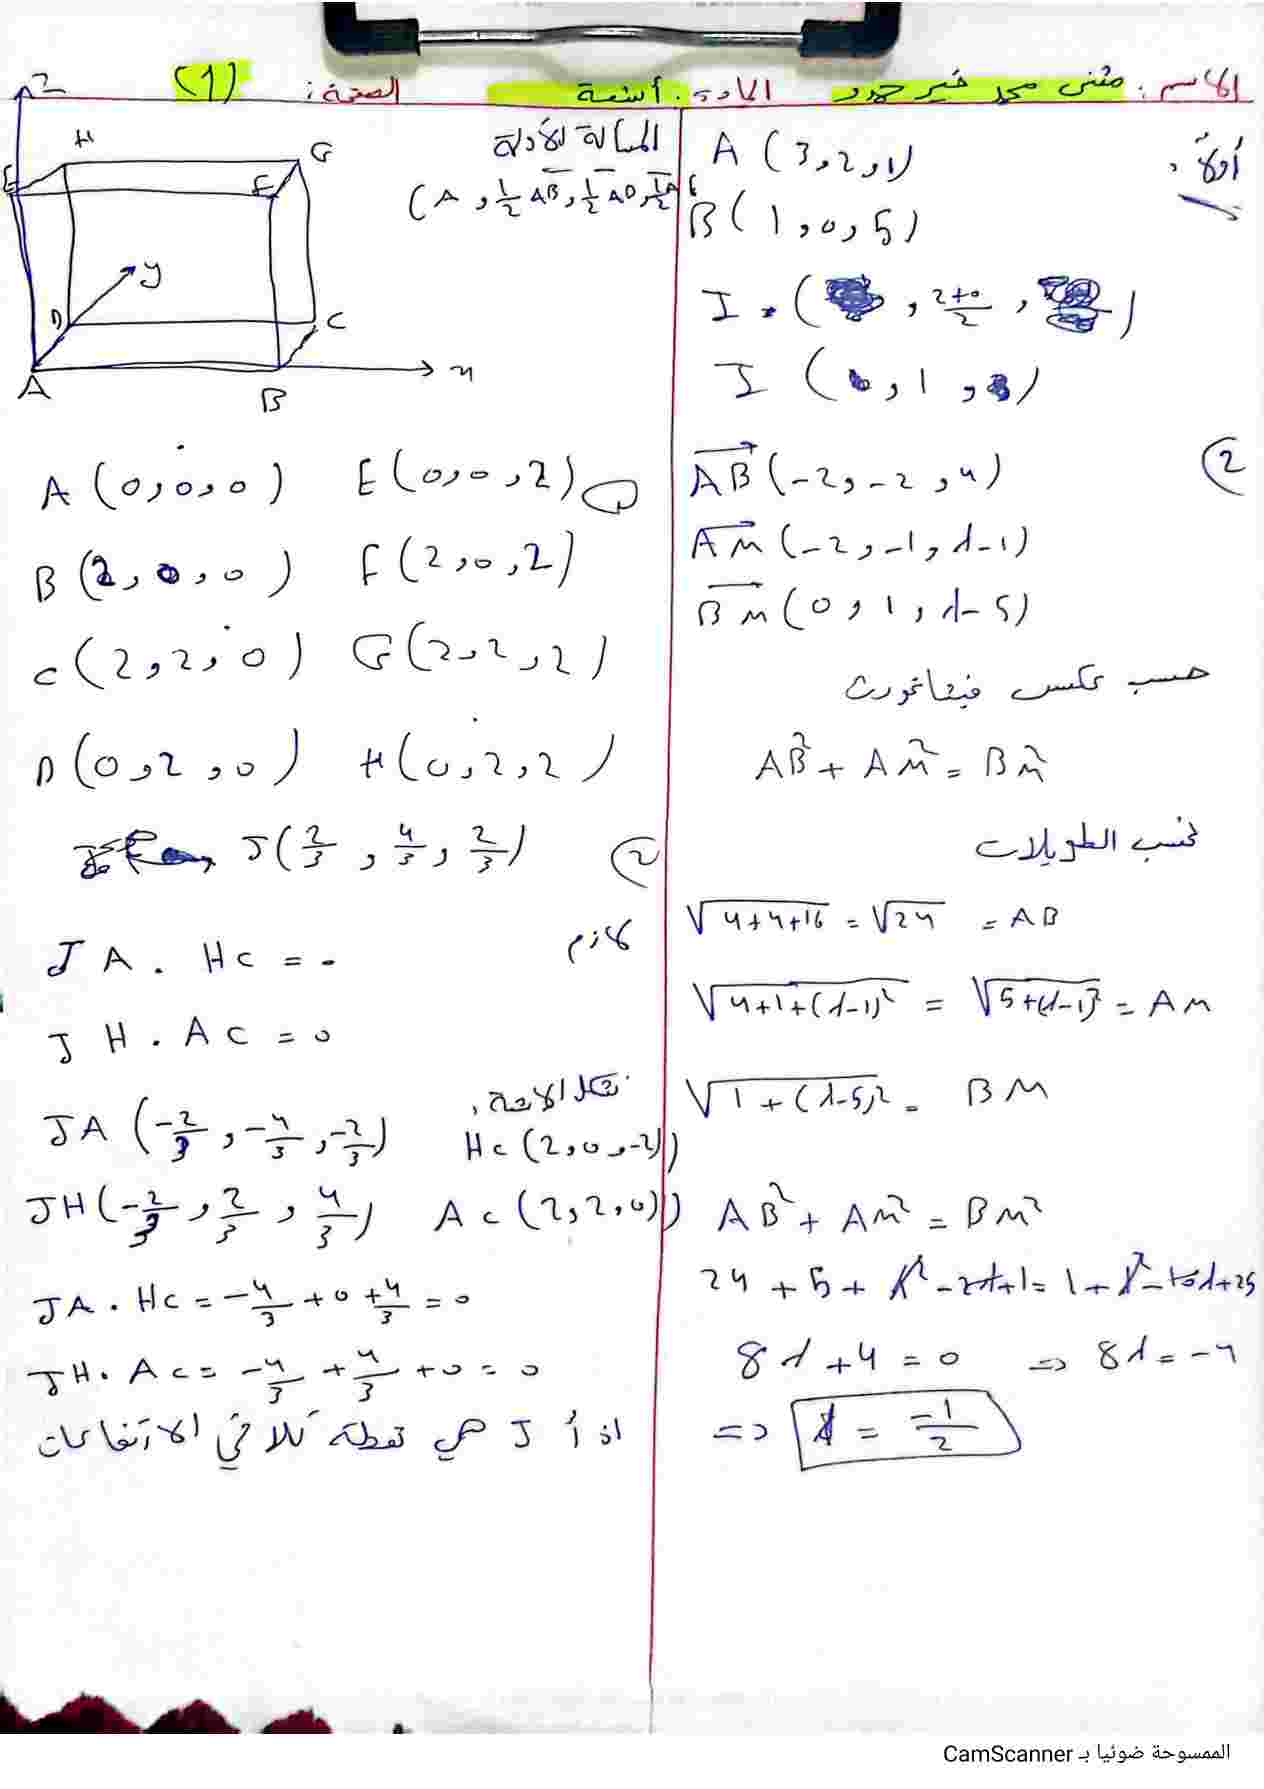 الاسم: مثنى محمد خير حمود المادة: أشعة الصفحة: (1)
أولاً:
A (3, 2, 1)
B (1, 0, 5)
I . ( , 2+0/2 , )
I ( , 1 , 3)
(2
AB (-2, -2, 4)
AM (-2, -1, λ-1)
BM (0, 1, λ-5)
حسب عكس فيثاغورث
AB² + AM² = BM²
نحسب الطويلات
√4+4+16 = √24 = AB
√4+1+(λ-1)² = √5+(λ-1)² = AM
√1+(λ-5)² = BM
AB² + AM² = BM²
24 + 5 + λ² - 2λ+1 = 1 + λ² - 10λ+25
8λ + 4 = 0 => 8λ = -4
=> λ = -1/2
المسألة الأولى
(A, 1/2 AB, 1/2 AD, 1/2 AE
Z
H
G
E
F
y
D
C
A
B
x
A (0, 0, 0) E (0, 0, 2)
B (2, 0, 0) F (2, 0, 2)
C (2, 2, 0) G (2, 2, 2)
D (0, 2, 0) H (0, 2, 2)
J (2/3, 4/3, 2/3) (2
لازم
JA . HC = 0
JH . AC = 0
JA (-2/3, -4/3, -2/3) HC (2, 0, -2)
JH (-2/3, 2/3, 4/3) AC (2, 2, 0)
JA . HC = -4/3 + 0 + 4/3 = 0
JH . AC = -4/3 + 4/3 + 0 = 0
اذاً J هي نقطة تلاقي الارتفاعات
الممسوحة ضوئيا بـ CamScanner